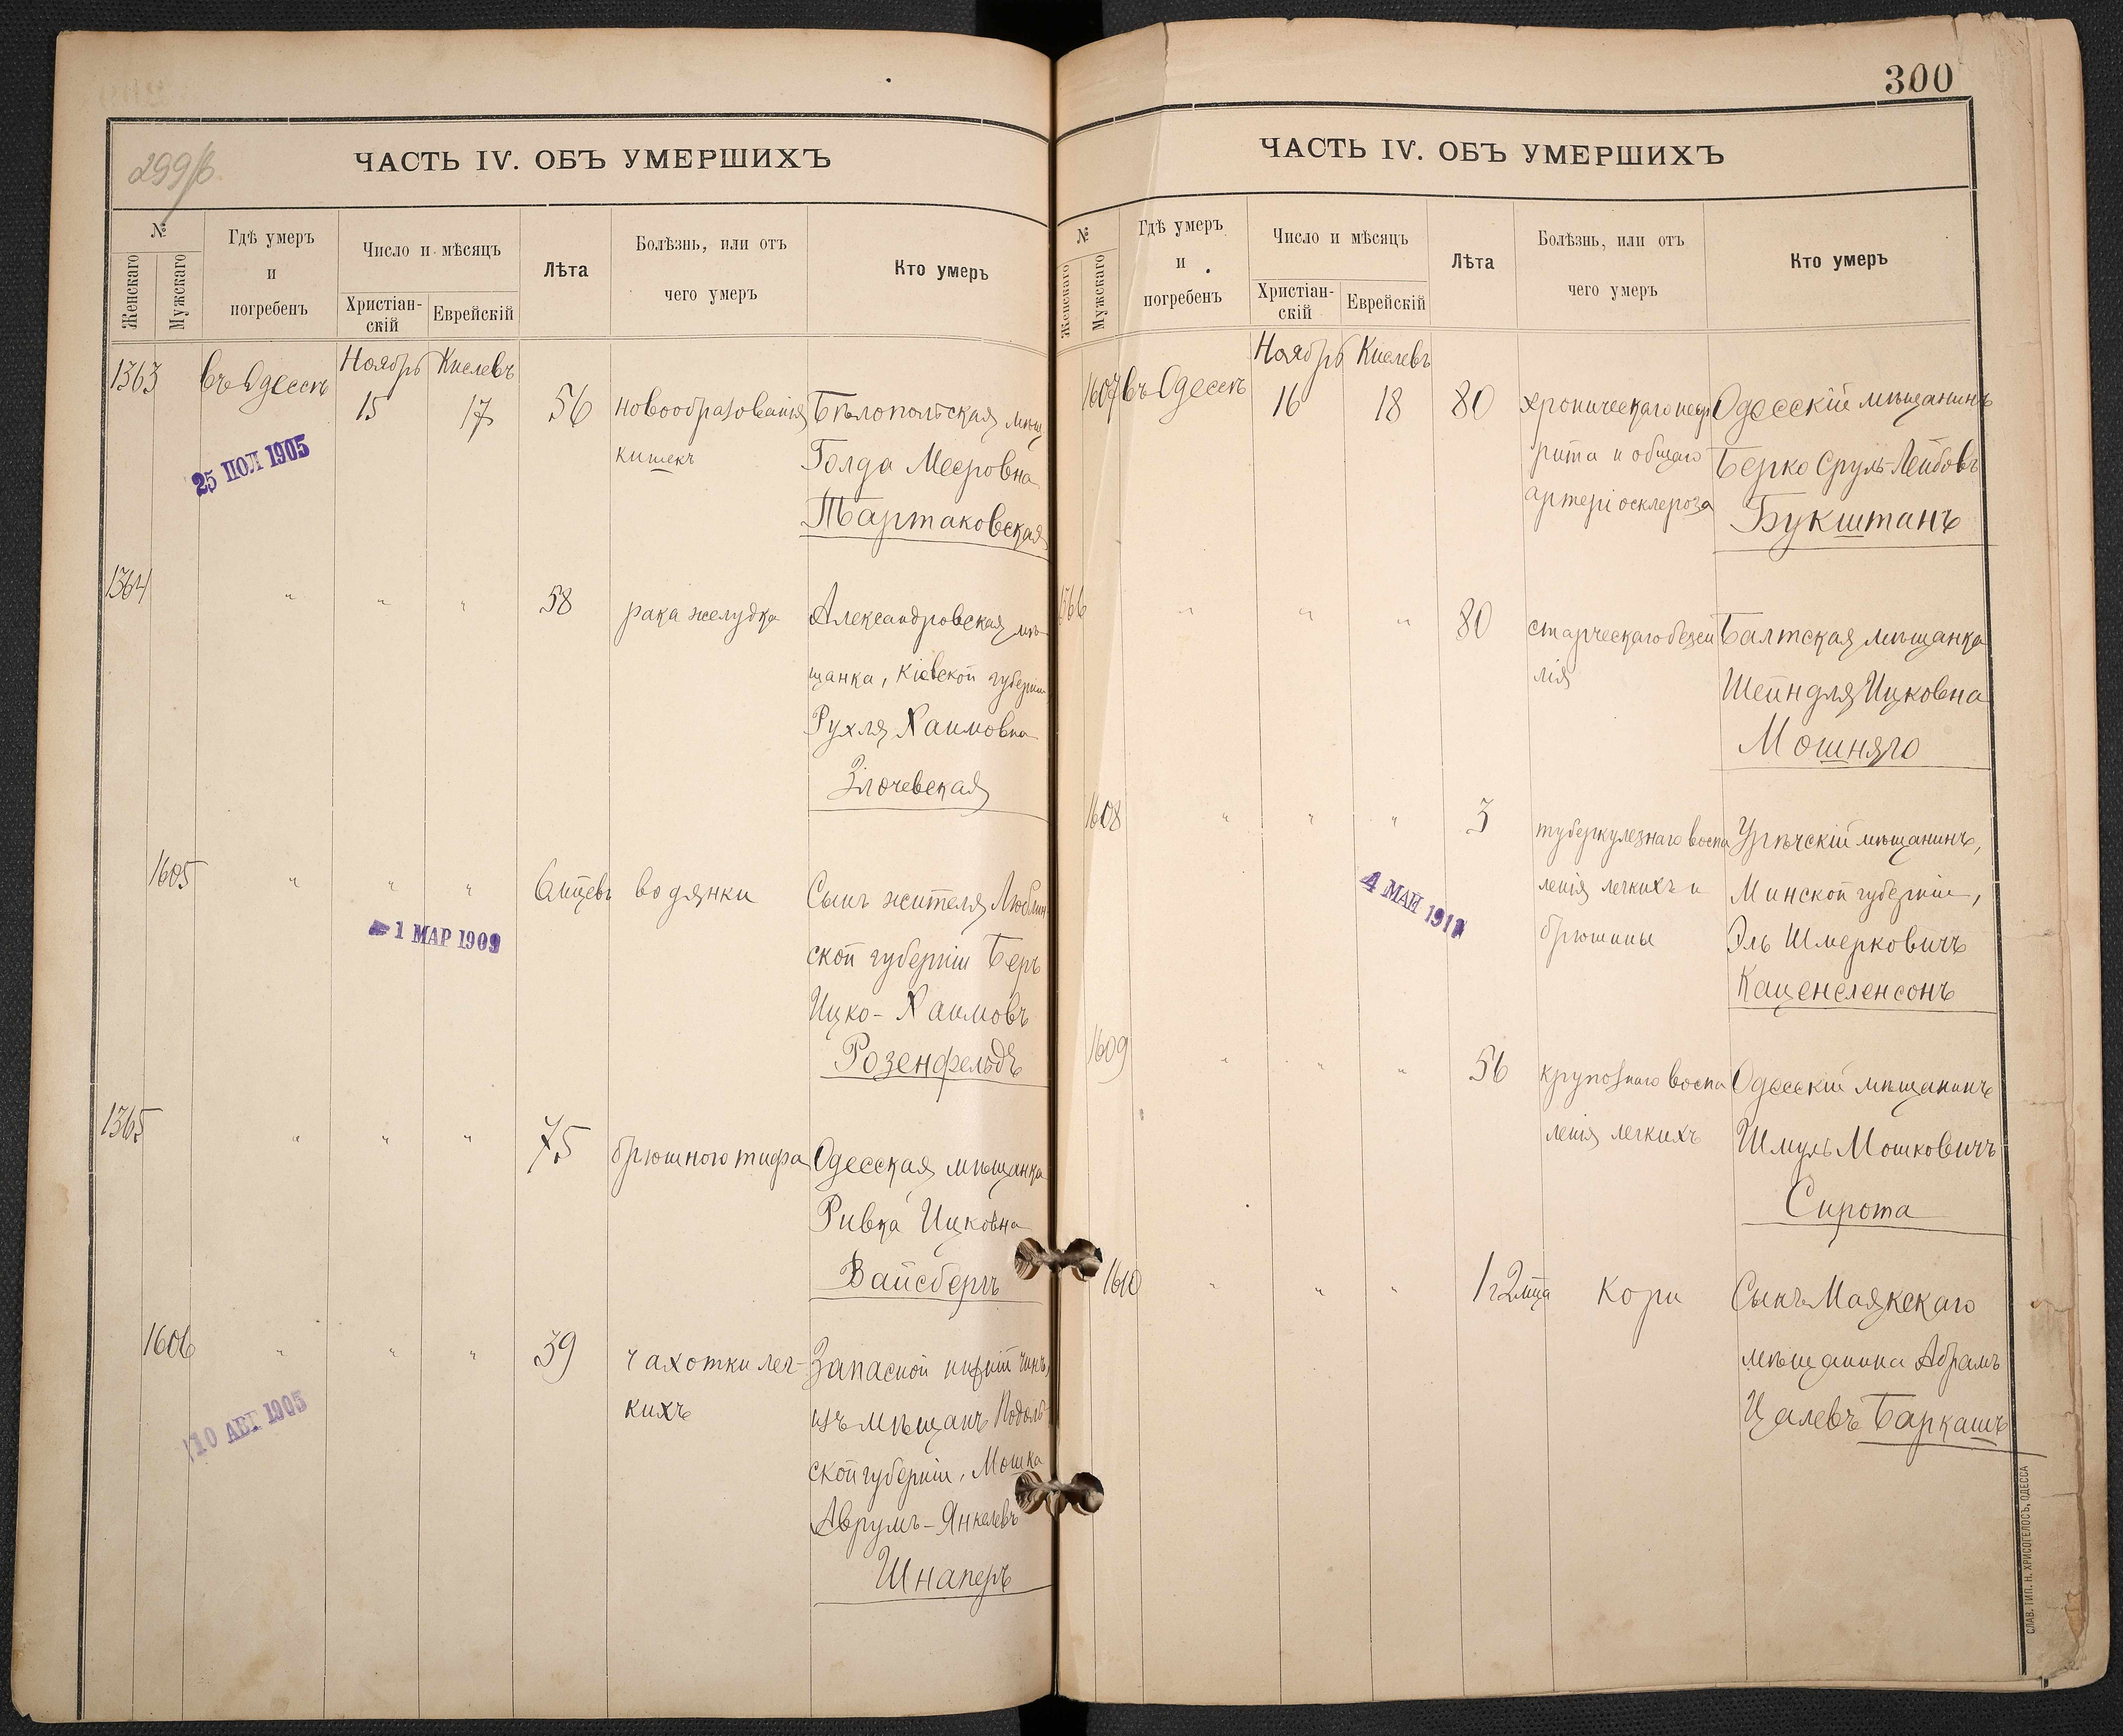 299/б
ЧАСТЬ IV. ОБЪ УМЕРШИХЪ
№
Женскаго
Мужскаго
Гдѣ умеръ
и
погребенъ
Число и мѣсяцъ
Христіан-
скій
Еврейскій
Лѣта
Болѣзнь, или отъ
чего умеръ
Кто умеръ
1363 въ Одессѣ Ноябрь Кислевъ
15 17 56 новообразованія Бѣлопольская мѣщ
кишекъ Голда Мееровна
25 ІЮЛ 1905
Тартаковская
1364 " " " 58 рака желудка Александровская мѣ-
щанка, Кіевской губерніи
Рухля Хаимовна
Злочевская
1605 " " " 6 мцевъ водянки Сынъ жителя Люблин
1 МАР 1909
ской губерніи Беръ
Ицко-Хаимовъ
Розенфельдъ
1365 " " " 75 брюшного тифа Одесская мѣщанка
Ривка Ицковна
Вайсбергъ
1606 " " " 39 чахотки лег- Запасной нижній чинъ,
кихъ изъ мѣщанъ Подоль
10 АВГ 1905
ской губерніи, Мошка
Аврумъ-Янкелевъ
Шнаперъ
300
ЧАСТЬ IV. ОБЪ УМЕРШИХЪ
№
Женскаго
Мужскаго
Гдѣ умеръ
и
погребенъ
Число и мѣсяцъ
Христіан-
скій
Еврейскій
Лѣта
Болѣзнь, или отъ
чего умеръ
Кто умеръ
1607 въ Одессѣ Ноябрь Кислевъ
16 18 80 хроническаго неф Одесскій мѣщанинъ
рита и общаго Берко Сруль-Лейбовъ
артеріосклероза Букштанъ
1366 " " " 80 старческаго безси Балтская мѣщанка
лія Шейндля Ицковна
Мошняго
1608 " " " 3 туберкулезнаго воспа мѣщанинъ,
ленія легкихъ и Минской губерніи,
4 МАЙ 1911
брюшины Эль Шмерковичъ
Каценеленсонъ
1609 " " " 56 крупознаго воспа Одесскій мѣщанинъ
ленія легкихъ Шмуль Мошковичъ
Сирота
1610 " " " 1 г 2 мца Кори Сынъ Маякскаго
мѣщанина Абрамъ
Цалевъ Баркашъ
СЛАВ. ТИП. Н. ХРИСОГЕЛОСЪ, ОДЕССА